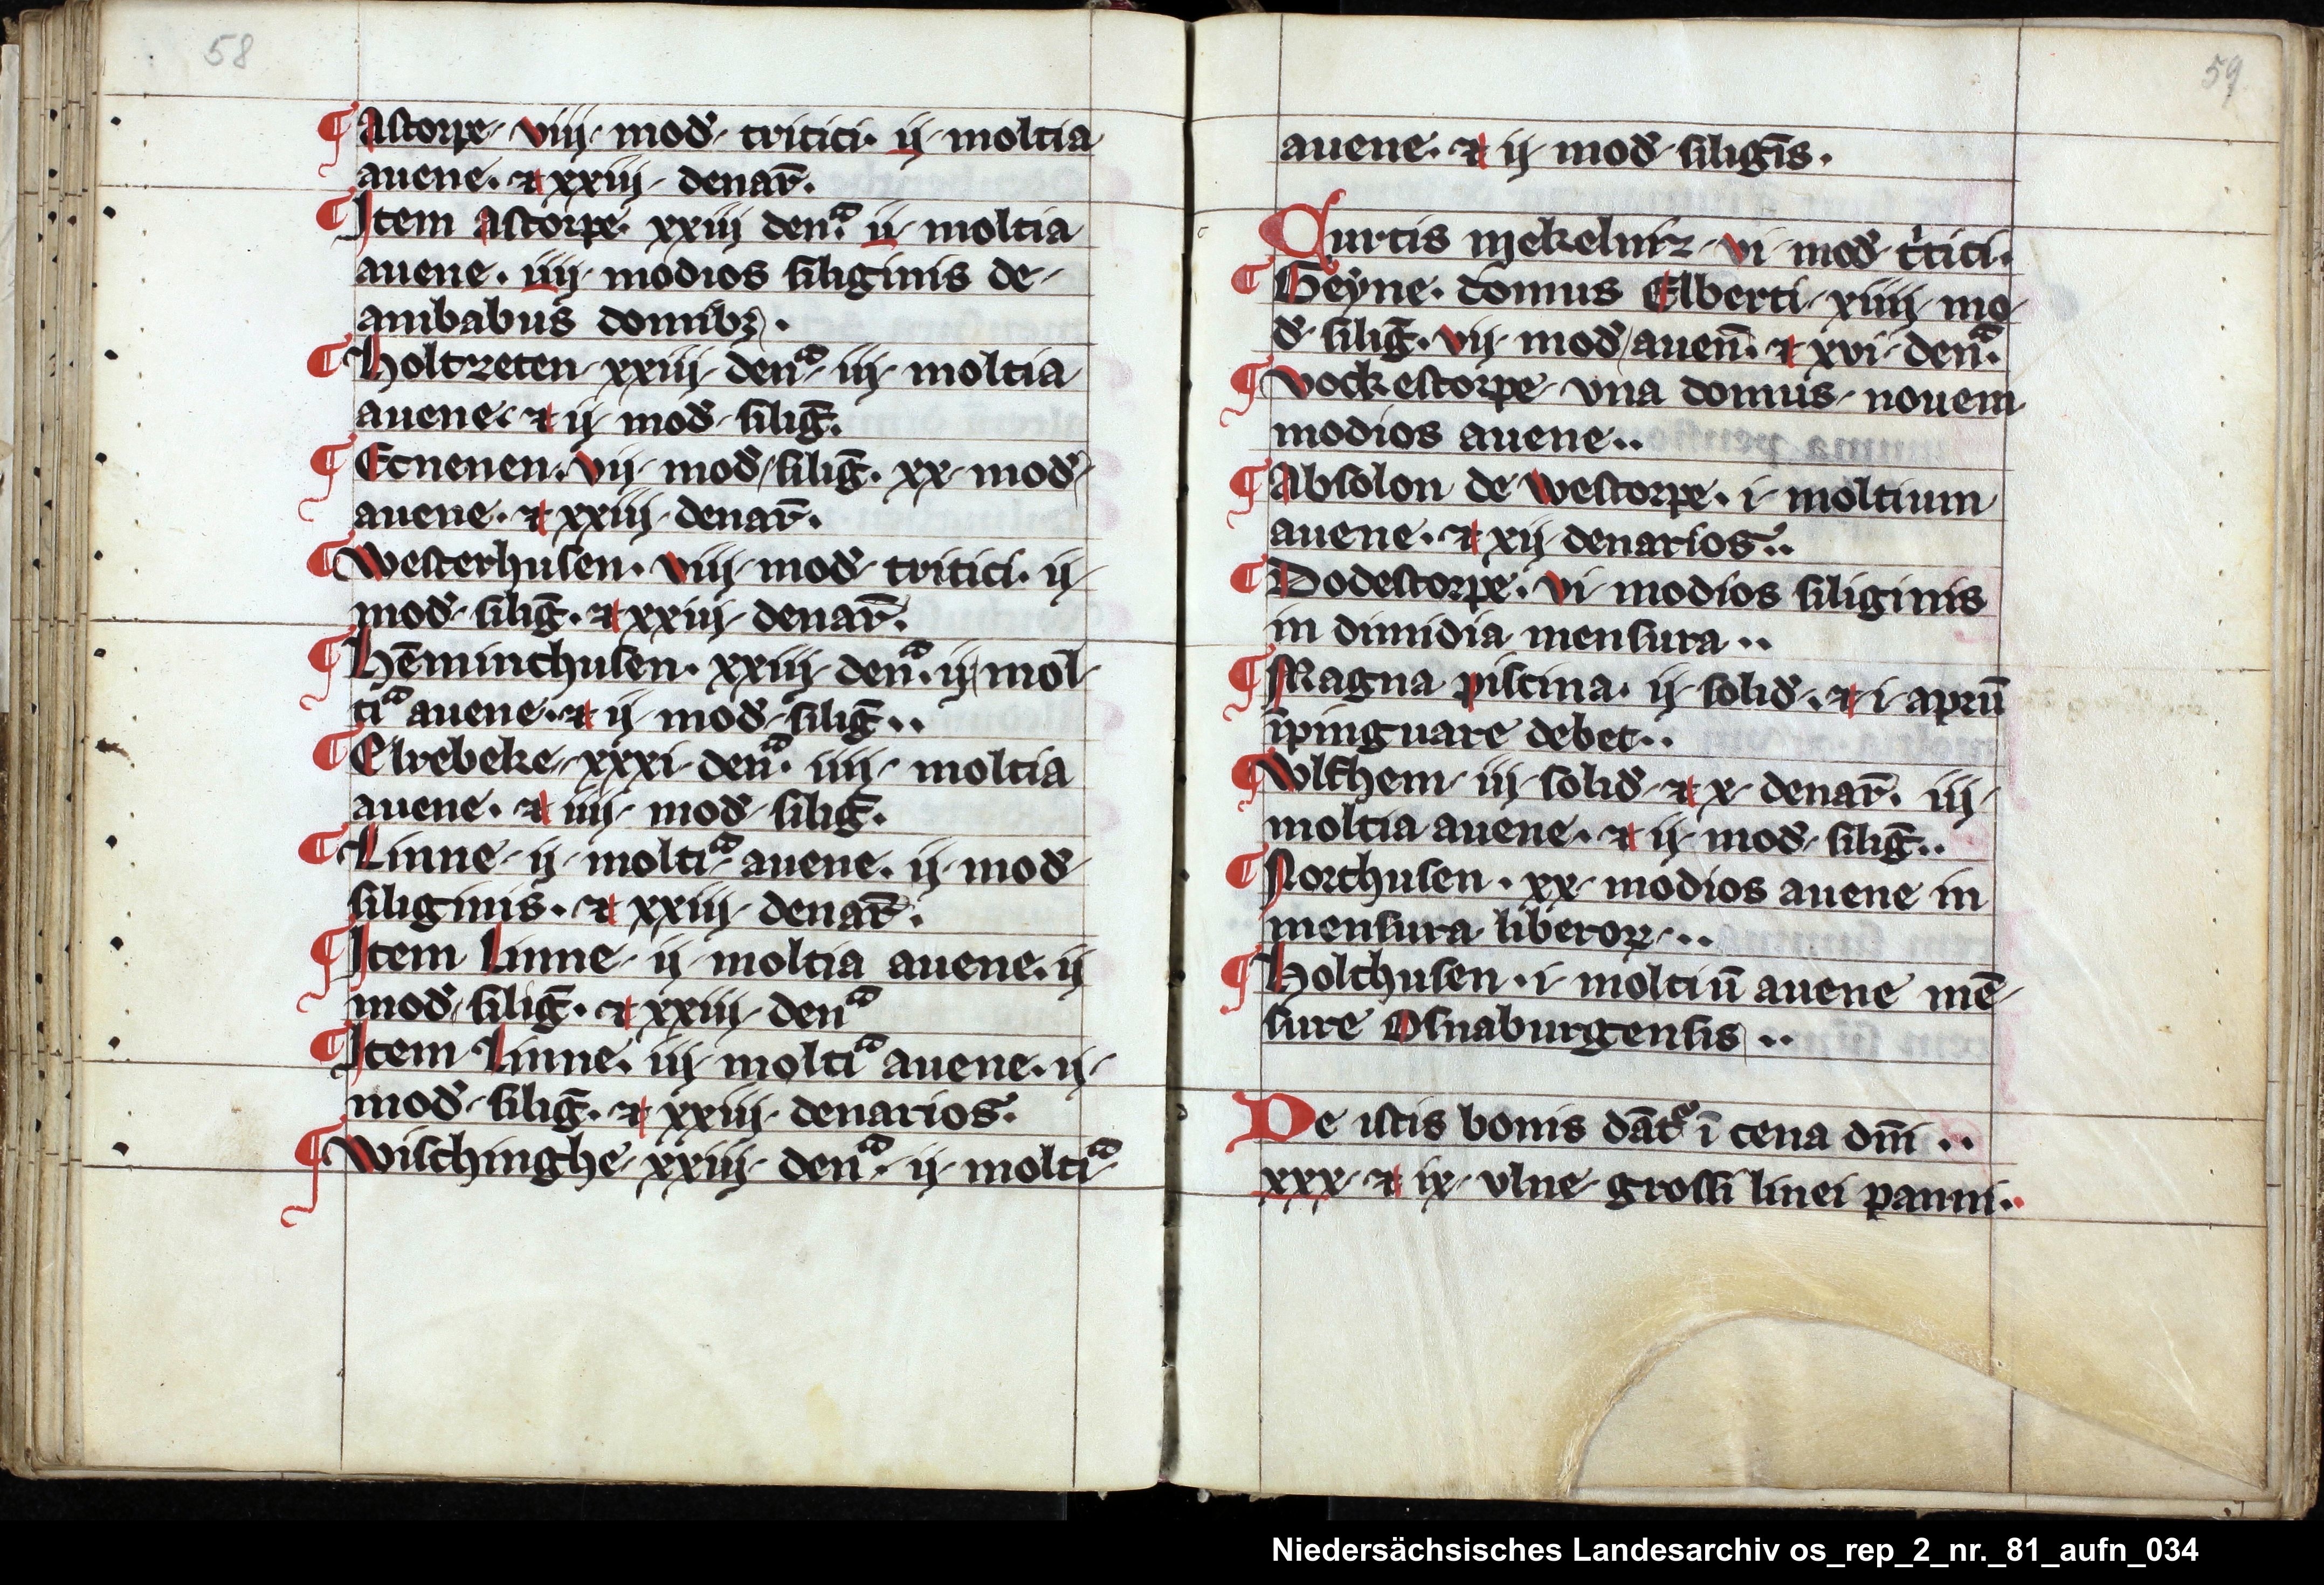 58
¶ Astorpe. viij. mod̄. tritici. ij. moltia
auene. ⁊ xxiij. denar̄.
¶ Item Astorpe. xxiiij denͣ. ij. moltia
auene. iiij. modios siliginis de
ambabus domibꝫ.
¶ Holtzeten. xxiiij. denͣ. iij. moltia
auene. ⁊ ij. mod̄. siliḡ.
¶ Ecnenen. vij. mod̄. siliḡ. xx. mod̄
auene. ⁊ xxiiij. denar̄.
¶ Westerhusen. viij. mod̄. tritici. ij.
mod̄. siliḡ. ⁊ xxiij. denar̄.
¶ Hēminchusen. xxiiij. denͣ. ij. mol
tiͣ auene. ⁊ ij. mod̄. siliḡ..
¶ Elrebeke. xxxi. denͣ. iiij. moltia
auene. ⁊ iiij. mod̄. siliḡ.
¶ Linne. ij. moltiͣ auene. ij. mod̄
siliginis. ⁊ xxiij. denar̄.
¶ Item Linne. ij. moltia auene. ij
mod̄. siliḡ. ⁊ xxiij. denͣ
¶ Item Linne. iij. moltiͣ auene. ij.
mod̄. siliḡ. ⁊ xxiij. denarios.
¶ Wischinghe. xxiij. denͣ. ij. moltiͣ
59
auene. ⁊ ij. mod̄. siligīs.
Curtis mekeluiz. vi. mod̄. tͥtici.
¶ Geyne. domus Elberti. xiiij. mo
d̄. siliḡ. vij. mod̄ auen̄. ⁊ xvi. denͣ.
¶ Vockestorpe. vna domus. nouem
modios auene..
¶ Absolon de westorpe. i. moltium
auene. ⁊ xij. denarios..
¶ Dodestorpe. vi. modios siliginis
in dimidia mensura..
¶ Magna piscina. ij. solid̄. ⁊ i. aprū
īpinguare debet..
¶ Wlfhem. iij. solid̄. ⁊ x. denar̄. iij.
moltia auene. ⁊ ij. mod̄. siliḡ..
¶ Northusen. xx. modios auene in
mensura liberoꝝ...
¶ Holthusen. i. moltiū auene mē
sure Osnaburgensis..
De istis bonis dāt᷑ ī cena dn̄i..
xxx. ⁊ ix. vlne grossi linei panni.
Niedersächsisches Landesarchiv os_rep_2_nr._81_aufn_034